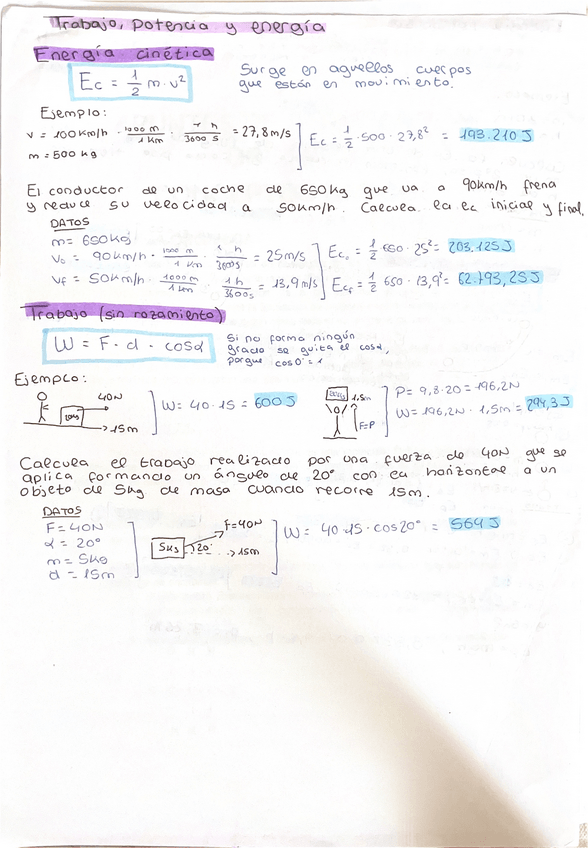 Trabajo, potencia y energía
Energía cinética
Ec = 1/2 m·v²
Surge en aquellos cuerpos
que están en movimiento.
Ejemplo:
v = 100km/h · 1000 m/1 km · 1 h/3600 s = 27,8m/s
m = 500 kg
Ec = 1/2 · 500 · 27,8² = 193.210 J
El conductor de un coche de 650kg que va a 90km/h frena
y reduce su velocidad a 50km/h. Calcula la Ec inicial y final
DATOS
m = 650kg
v₀ = 90km/h · 1000 m/1 km · 1 h/3600s = 25m/s
Ec₀ = 1/2 650 · 25² = 203.125J
vf = 50km/h · 1000m/1 km · 1 h/3600s = 13,9m/s
Ecf = 1/2 650 · 13,9² = 62.793,25J
Trabajo (sin rozamiento)
W = F · d · cosα
Si no forma ningún
grado se quita el cosα,
porque cos0° = 1
Ejemplo:
40N
10kg
15m
W = 40 · 15 = 600J
20kg
1,5m
F=P
P = 9,8·20 = 196,2N
W = 196,2N · 1,5m = 294,3J
Calcula el trabajo realizado por una fuerza de 40N que se
aplica formando un ángulo de 20° con la horizontal a un
objeto de 5kg de masa cuando recorre 15m.
DATOS
F = 40N
α = 20°
m = 5kg
d = 15m
F=40N
5kg
20°
15m
W = 40·15·cos20° = 564J